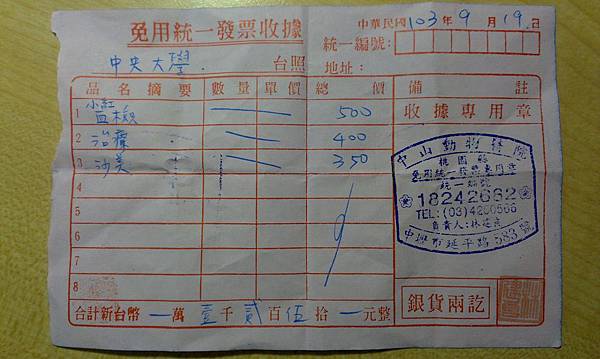 免用統一發票收據
中華民國103年9月19日
中央大學 台照
統一編號:
地址:
品名摘要 數量 單價 總價 備註
小紅
1 血檢 500
2 治療 400
3 沙美 350
4
5
6
7
8
收據專用章
中山動物醫院
桃園縣
免用統一發票專用章
統一編號
18242662
TEL:(03)4260566
負責人:林
中壢市延平路583號
合計新台幣 萬壹千貳百伍拾 元整
銀貨兩訖